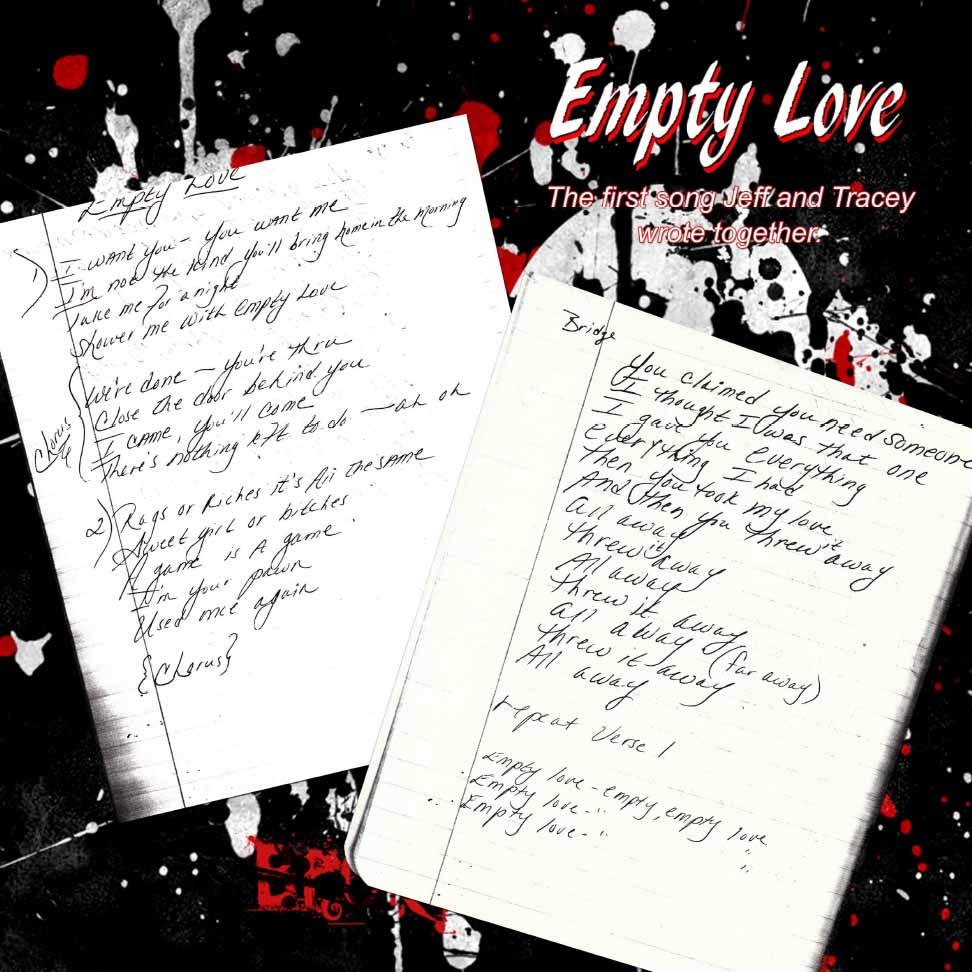 Empty Love
The first song Jeff and Tracey
wrote together.
Empty Love
1) I want you - you want me
I'm not the kind you'll bring home in the morning
Take me for a night
Shower me with empty love
Chorus
We're done - you're thru
Close the door behind you
I came, you'll come
There's nothing left to do - ah oh
2) Rags or Riches it's All the same
Sweet girl or bitches
A game is A game
I'm your pawn
Used once again
{Chorus}
Bridge
You claimed you need someone
I thought I was that one
I gave you everything
everything I had
Then you took my love
And then you threw it away
All away
threw it away
All away
threw it away
all away (far away)
threw it away
All away
repeat Verse 1
Empty love - empty, empty love
Empty love - " "
Empty love - " "